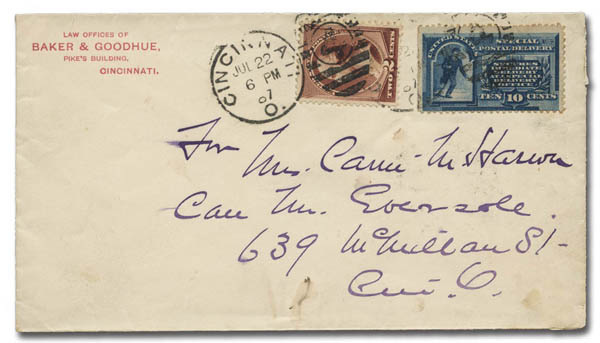 LAW OFFICES OF
BAKER & GOODHUE,
PIKE'S BUILDING,
CINCINNATI.
CINCINNATI. O.
JUL 22
6 PM
87
TWO 2 CENTS
SPECIAL
POSTAL DELIVERY
TEN 10 CENTS
For Mrs. Carrie
Care Mr. Eversole.
639 McMillan St-
Cin. O.